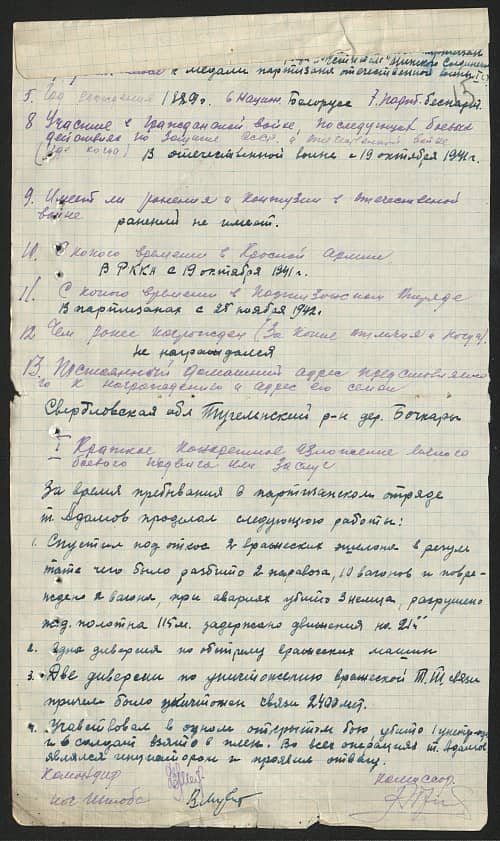 к медали партизана отечественной войны
5. Год рождения 1889г. 6 Национ Белорус 7. Парт. беспарт.
8 Участие в гражданской войне, последующих боевых
действиях по защите СССР и отечественной войне
(где когда) В отечественной войне с 19 октября 1941г.
9. Имеет ли ранения и контузии в отечественной
войне
ранений не имеет.
10. С какого времени в Красной Армии
В РККА с 19 октября 1941г.
11. С какого времени в партизанском отряде
В партизанах с 25 ноября 1942г.
12 Чем ранее награжден (за какие отличия и когда)
Не награждался
13. Постоянный домашний адрес представляемо
го к награждению и адрес его семьи
Свердловская обл р-н дер. Бочкари
I Краткое конкретное изложение личного
боевого подвига или заслуг
За время пребывания в партизанском отряде
т. Адамов проделал следующую работы:
1. Спустил под откос 2 вражеских эшелона в резуль
тате чего было разбито 2 паровоза, 10 вагонов и повре-
ждено 2 вагона, при авариях убито 3 немца, разрушено
жд. полотна 115м. задержано движения на 21ч
2. одна диверсия по обстрелу вражеских машин
3. Две диверсии по уничтожению вражеской Т.Т. связи
причем было уничтожен связи 2400 мет.
4. Участвовал в одном открытом бою убито 1 унтер-оф
и солдат взято в плен. Во всех операциях т. Адамов
являлся и проявил отвагу.
Командир комиссар